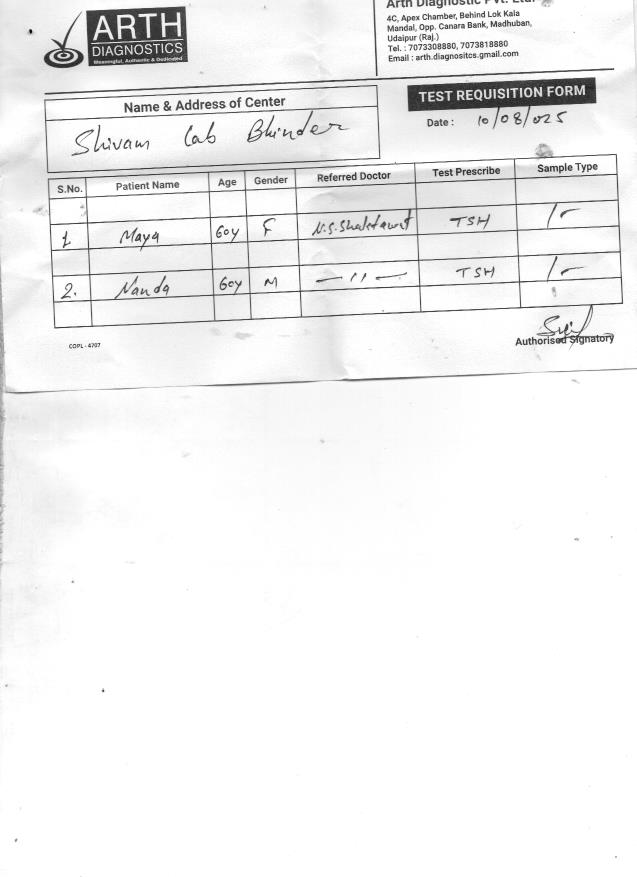 ARTH
DIAGNOSTICS
Meaningful, Authentic & Dedicated
Arth Diagnostic Pvt. Ltd.
4C, Apex Chamber, Behind Lok Kala
Mandal, Opp. Canara Bank, Madhuban,
Udaipur (Raj.)
Tel. : 7073308880, 7073818880
Email : arth.diagnositcs.gmail.com
Name & Address of Center
Shivam Lab Bhinder
TEST REQUISITION FORM
Date : 10/08/025
S.No. Patient Name Age Gender Referred Doctor Test Prescribe Sample Type
1 Maya 60y F N.S. Shaktawat TSH 1-
2. Nanda 60y M —11— TSH 1-
Authorised Signatory
COPL - 4707